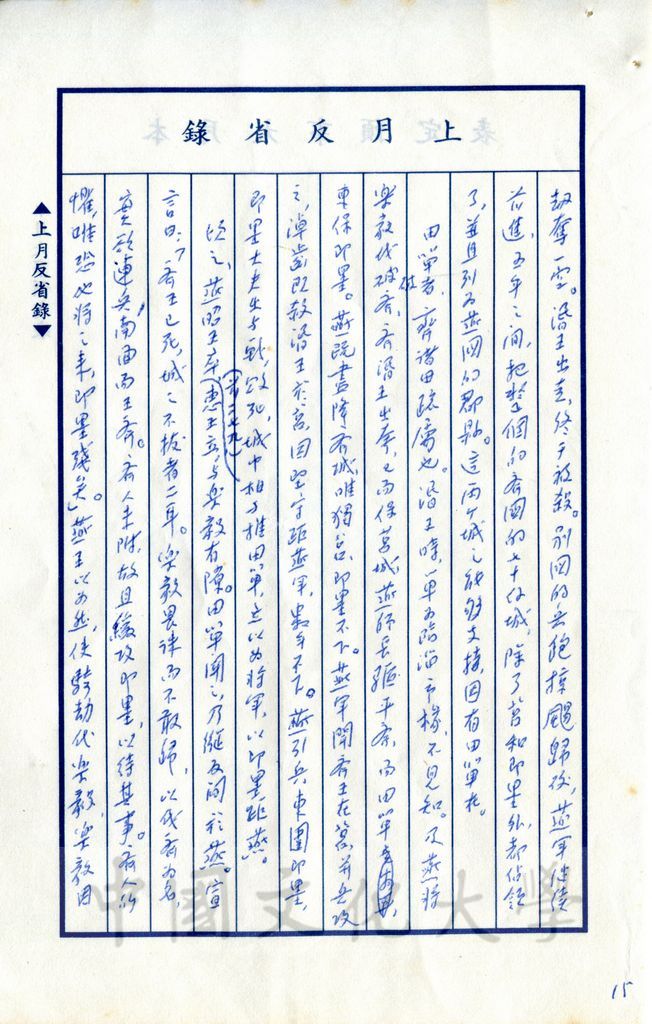 上月反省錄
劫奪一空。湣王出走,終于被殺。別國的兵飽掠颺歸後,燕軍繼續
前進,五年之間,把整個的齊國的七十餘城,除了莒和即墨外,都佔領
了,並且列為燕國的郡縣。這兩个城之能夠支持,因有田單在。
田單者,齊諸田疏屬也。湣王時,單為臨淄市掾,不見知。及燕使
樂毅伐破齊,齊湣王出奔,已而保莒城。燕師長驅平齊,而田單
東保即墨。燕既盡降齊城,唯獨莒、即墨不下。燕軍聞齊王在莒,并兵攻
之。淖齒既殺湣王於莒,因堅守距燕軍,數年不下。燕引兵東圍即墨,
即墨大夫出与戰,敗死。城中相与推田單,立以為將軍,以即墨距燕。
頃之,燕昭王卒,(前二七九)惠王立,与樂毅有隙。田單聞之,乃縱反間於燕,宣
言曰:「齊王已死,城之不拔者二耳。樂毅畏誅而不敢歸,以伐齊為名,
實欲連兵南面而王齊。齊人未附,故且緩攻即墨,以待其事。齊人所
懼,唯恐他將之來,即墨殘矣。」燕王以為然,使騎劫代樂毅,樂毅因
▲上月反省錄▼
中國文化大學
15